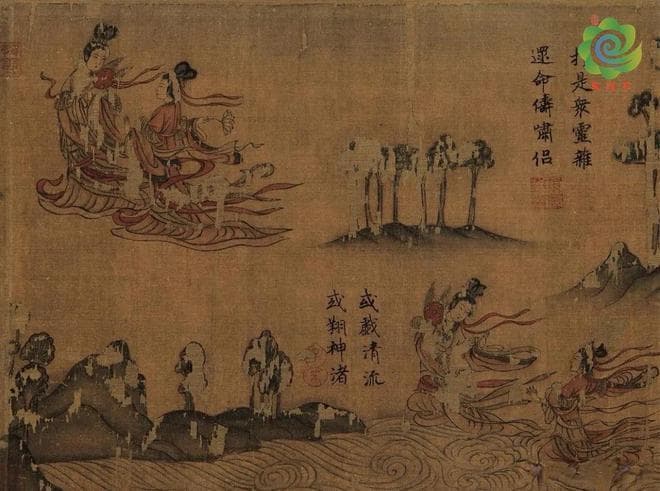 是衆靈雜
遝命儔嘯侶
或戲清流
或翔神渚